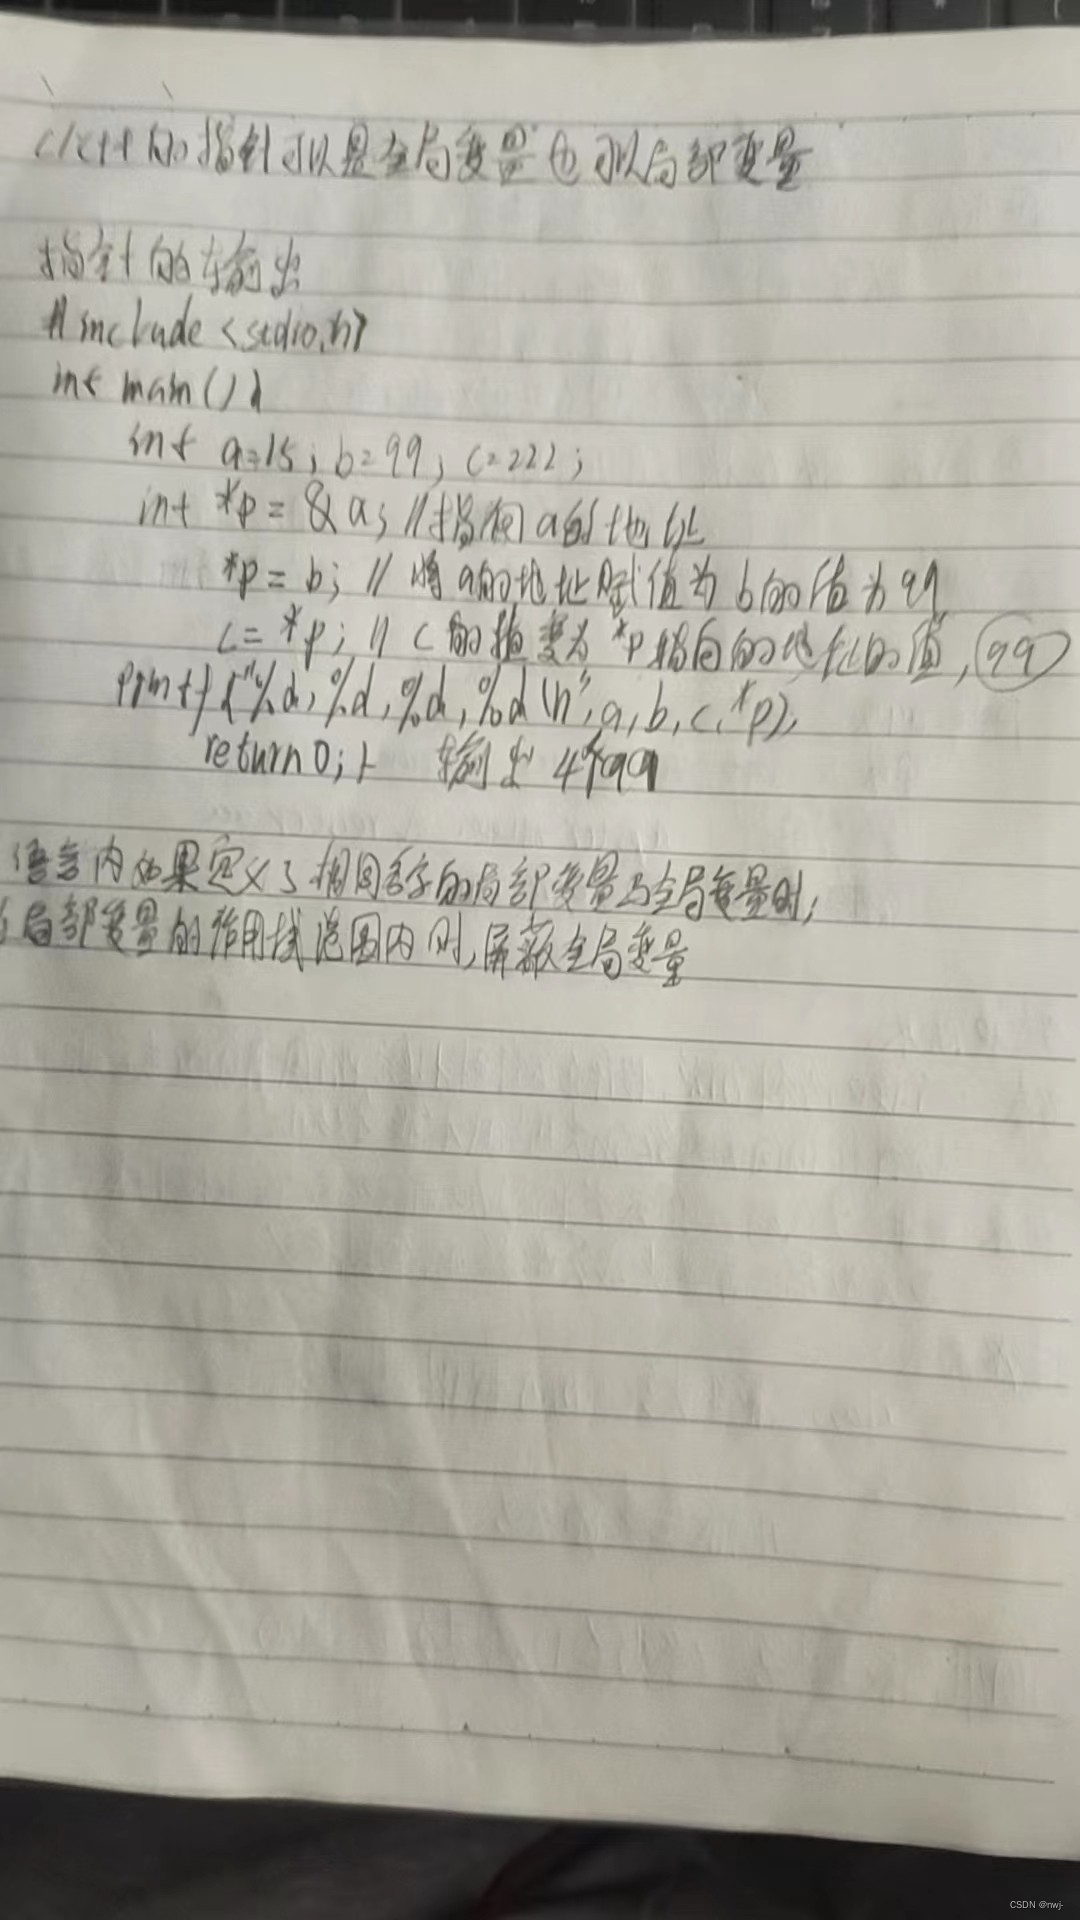 C/C++的指针可以是全局变量也可以局部变量
指针的输出
#include <stdio.h>
int main(){
int a=15, b=99, c=222;
int *p = &a; //指向a的地址
*p = b; // 将a的地址赋值为b的值为99
c = *p; // c的值变为*p指向的地址的值, 99
printf("%d,%d,%d,%d\n",a,b,c,*p);
return 0;} 输出4个99
语言内如果定义了相同名字的局部变量与全局变量时,
局部变量的作用域范围内时,屏蔽全局变量
CSDN @nwj-